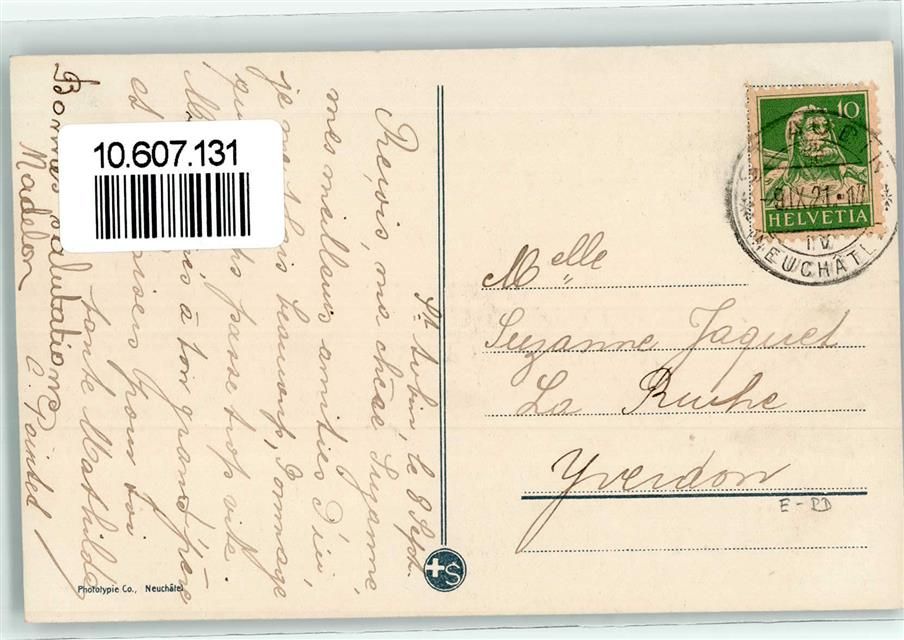 St. Aubin, le 8 Sept.
Reçois, ma chère Suzanne,
mes meilleures amitiés d'ici,
je me plais beaucoup, Dommage
que le temps passe trop vite.
à ton grand'père
et baisers pour toi
tante Mathilde
Bonnes salutations
Madelon
Melle
Suzanne Jaquet
La Ruche
Yverdon
E - PD
10
HELVETIA
-9.IX.21.
IV
NEUCHÂTEL
10.607.131
S
Phototypie Co., Neuchâtel